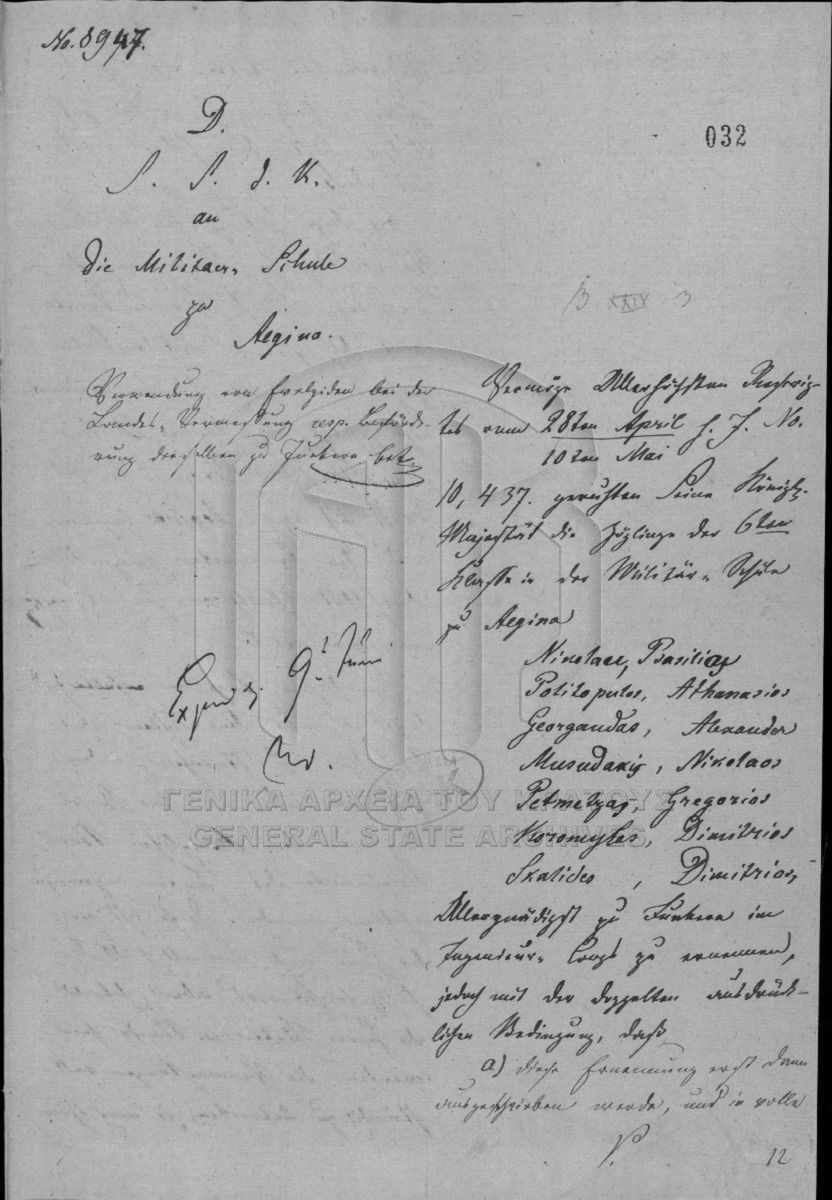 No. 8947.
032
D.
S. S. d. K.
an
die Militaer- Schule
zu
Aegina.
B XXIV 3
Verwendung von Evelpiden bei der
Landes-Vermessung resp. Beförde-
rung derselben zu Junkern bet.
Vermöge Allerhöchsten Rescrip-
tes vom 28ten April h. J. No.
10ten Mai
10,437. geruhten Seine Königl.
Majestät die Zöglinge der 6ten
Klasse in der Militär-Schule
zu Aegina
Nikolau, Basilios
Politopulos, Athanasios
Georgandas, Alexander
Musudakis, Nikolaos
Petmetzas, Gregorios
Koromylas, Dimitrios
Skalidis, Dimitrios,
Allergnädigst zu Junkern im
Ingenieur-Corps zu ernennen,
jedoch mit der doppelten ausdrück-
lichen Bedingung, daß
a) diese Ernennung erst dann
ausgeschrieben werde, und in volle
9. Juni
ΓΕΝΙΚΑ ΑΡΧΕΙΑ ΤΟΥ ΚΡΑΤΟΥΣ
GENERAL STATE ARCHIVES
12